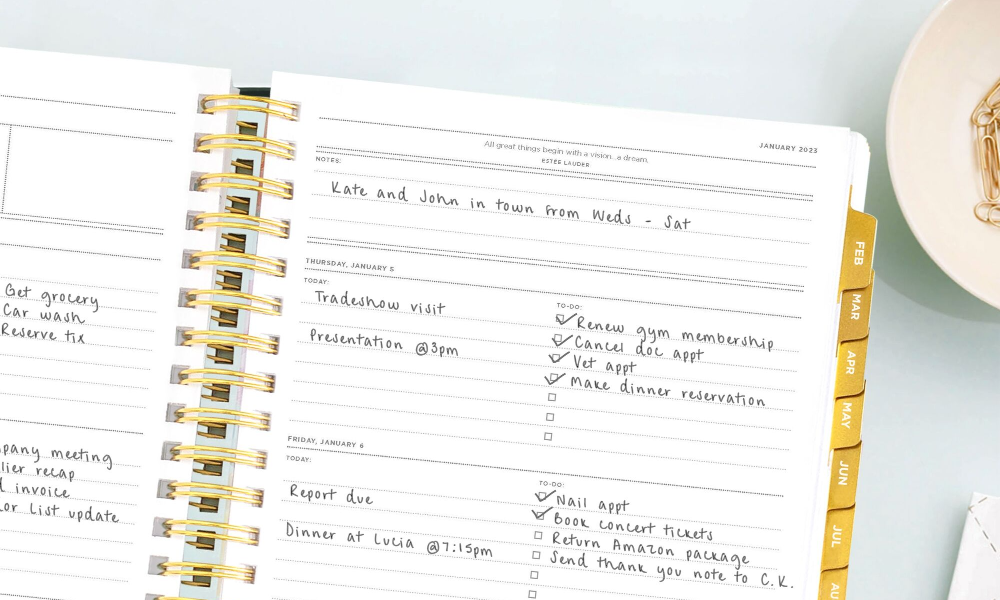 Get grocery
Car wash
Reserve tix
meeting
recap
invoice
List update
JANUARY 2023
All great things begin with a vision...a dream.
ESTEE LAUDER
NOTES:
Kate and John in town from Weds - Sat
THURSDAY, JANUARY 5
TODAY:
Tradeshow visit
Presentation @3pm
TO-DO:
Renew gym membership
Cancel doc appt
Vet appt
Make dinner reservation
FRIDAY, JANUARY 6
TODAY:
Report due
Dinner at Lucia @7:15pm
TO-DO:
Nail appt
Book concert tickets
Return Amazon package
Send thank you note to C.K.
FEB
MAR
APR
MAY
JUN
JUL